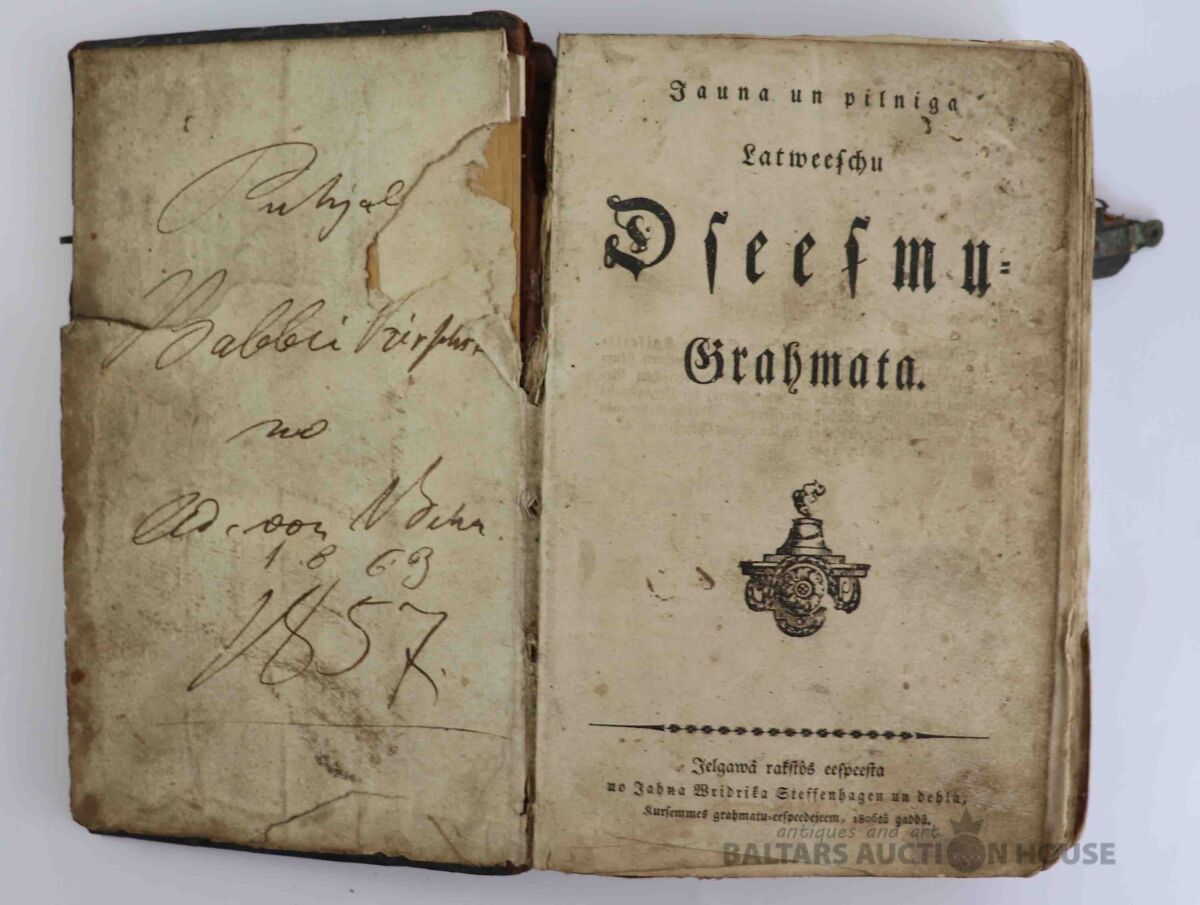 no
Ad. von Behr
1863
1857.
Jauna un pilniga
Latweeſchu
Dſeeſmu-
Grahmata.
Jelgawâ rakſtôs eeſpeeſta
no Jahna Wridrika Steffenhagen un dehla,
Kurſemmes grahmatu-eeſpeedejeem, 1806tâ gaddâ.
antiques and art
BALTARS AUCTION HOUSE